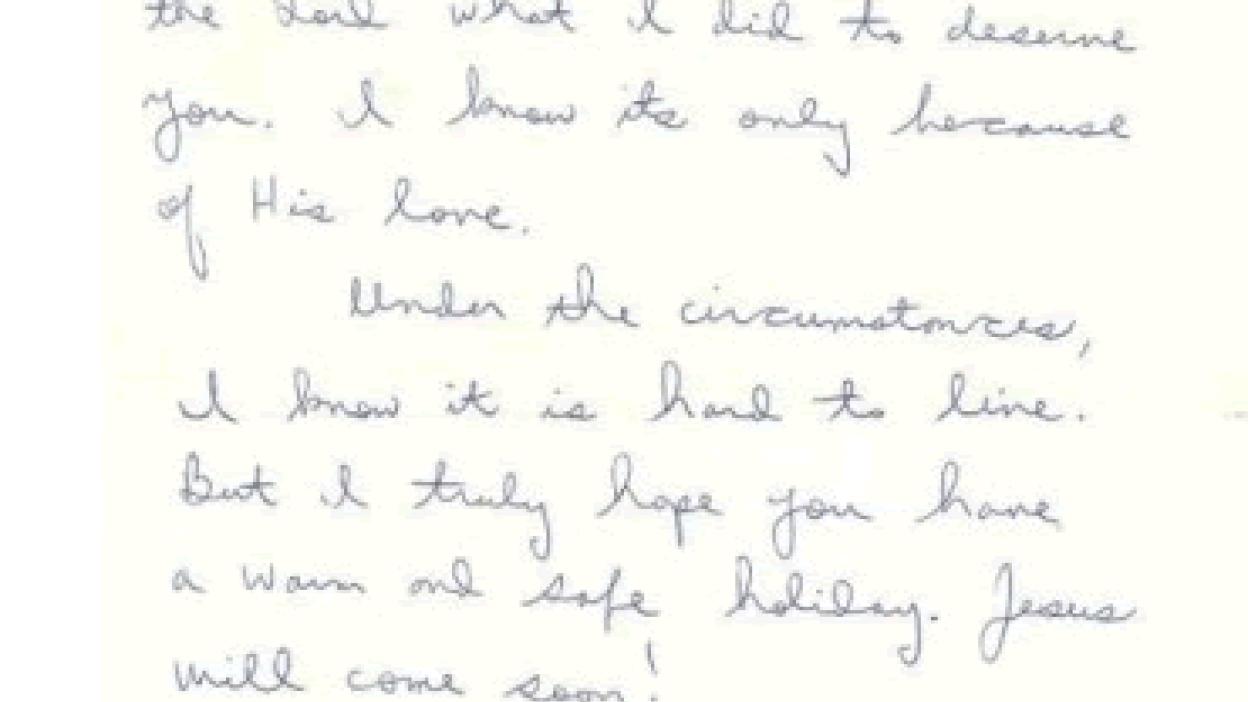 the Lord what I did to deserve
you. I know its only because
of His love.
Under the circumstances,
I know it is hard to live.
But I truly hope you have
a warm and safe holiday. Jesus
will come soon!